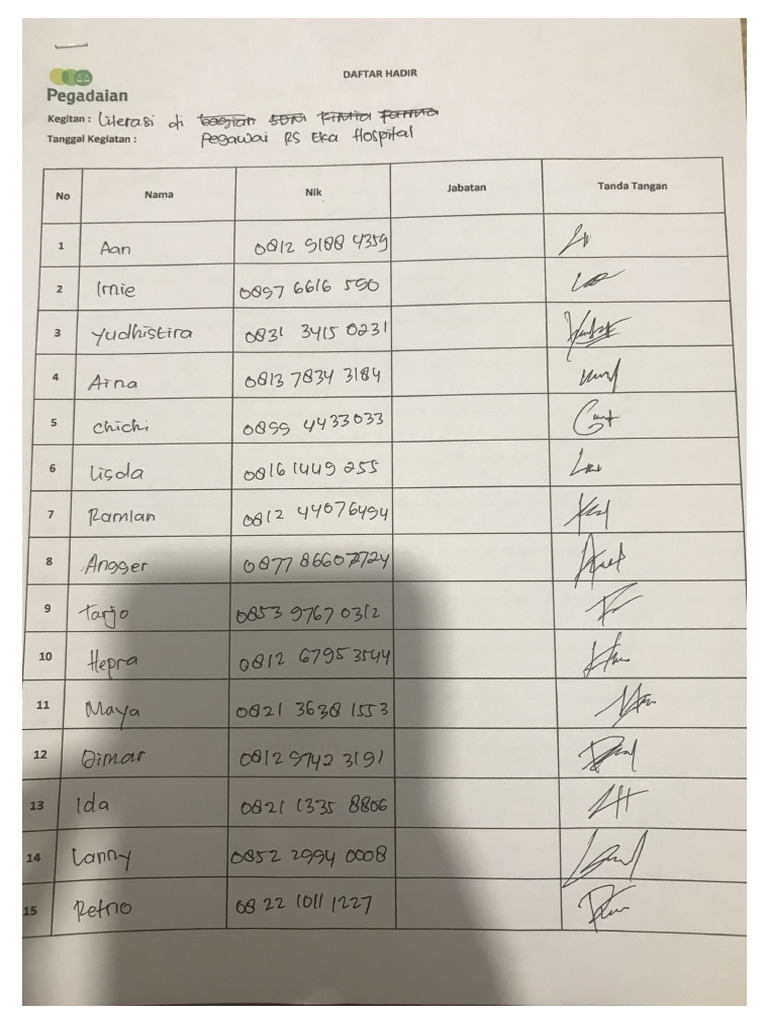 DAFTAR HADIR
Pegadaian
Kegitan : Literasi di bagian SDM Kimia Farma
Tanggal Kegiatan : Pegawai RS Eka Hospital
No Nama Nik Jabatan Tanda Tangan
1 Aan 0812 9188 4359
2 Irnie 0897 6616 590
3 Yudhistira 0831 3415 0231
4 Aina 0813 7834 3184
5 Chichi 0899 4433033
6 Lisda 08161449 255
7 Ramlan 0812 44076494
8 Angger 0877 86607724
9 Tarjo 0853 9767 0312
10 Hepra 0812 6795 3544
11 Maya 0821 3638 1553
12 Dimar 0812 9742 3191
13 Ida 0821 1335 8806
14 Lanny 0852 2994 0008
15 Retno 08 22 1011 1227